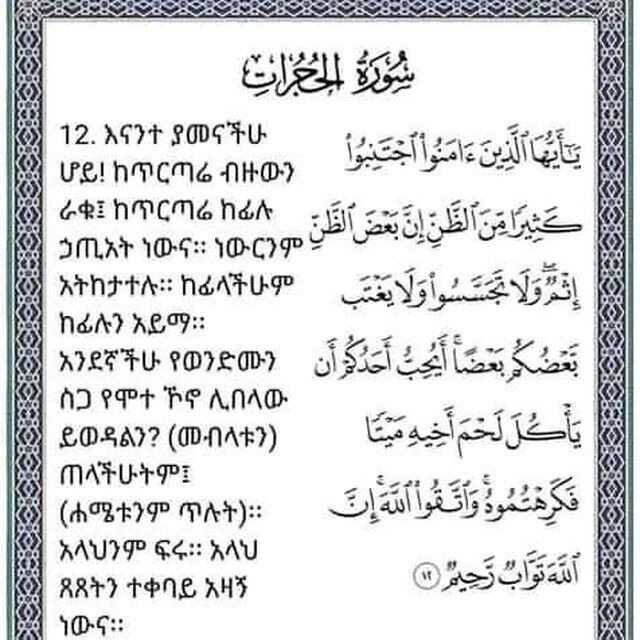 سُورَةُ الحُجُرَاتِ
12. እናንተ ያመናችሁ
ሆይ! ከጥርጣሬ ብዙውን
ራቁ፤ ከጥርጣሬ ከፊሉ
ኃጢአት ነውና። ነውርንም
አትከታተሉ። ከፊላችሁም
ከፊሉን አይማ።
አንደኛችሁ የወንድሙን
ስጋ የሞተ ኾኖ ሊበላው
ይወዳልን? (መብላቱን)
ጠላችሁትም፤
(ሐሜቱንም ጥሉት)።
አላህንም ፍሩ። አላህ
ጸጸትን ተቀባይ አዛኝ
ነውና።
يَـٰٓأَيُّهَا ٱلَّذِينَ ءَامَنُوا۟ ٱجْتَنِبُوا۟
كَثِيرًا مِّنَ ٱلظَّنِّ إِنَّ بَعْضَ ٱلظَّنِّ
إِثْمٌ ۖ وَلَا تَجَسَّسُوا۟ وَلَا يَغْتَب
بَّعْضُكُم بَعْضًا ۚ أَيُحِبُّ أَحَدُكُمْ أَن
يَأْكُلَ لَحْمَ أَخِيهِ مَيْتًا
فَكَرِهْتُمُوهُ ۚ وَٱتَّقُوا۟ ٱللَّهَ ۚ إِنَّ
ٱللَّهَ تَوَّابٌ رَّحِيمٌ ١٢